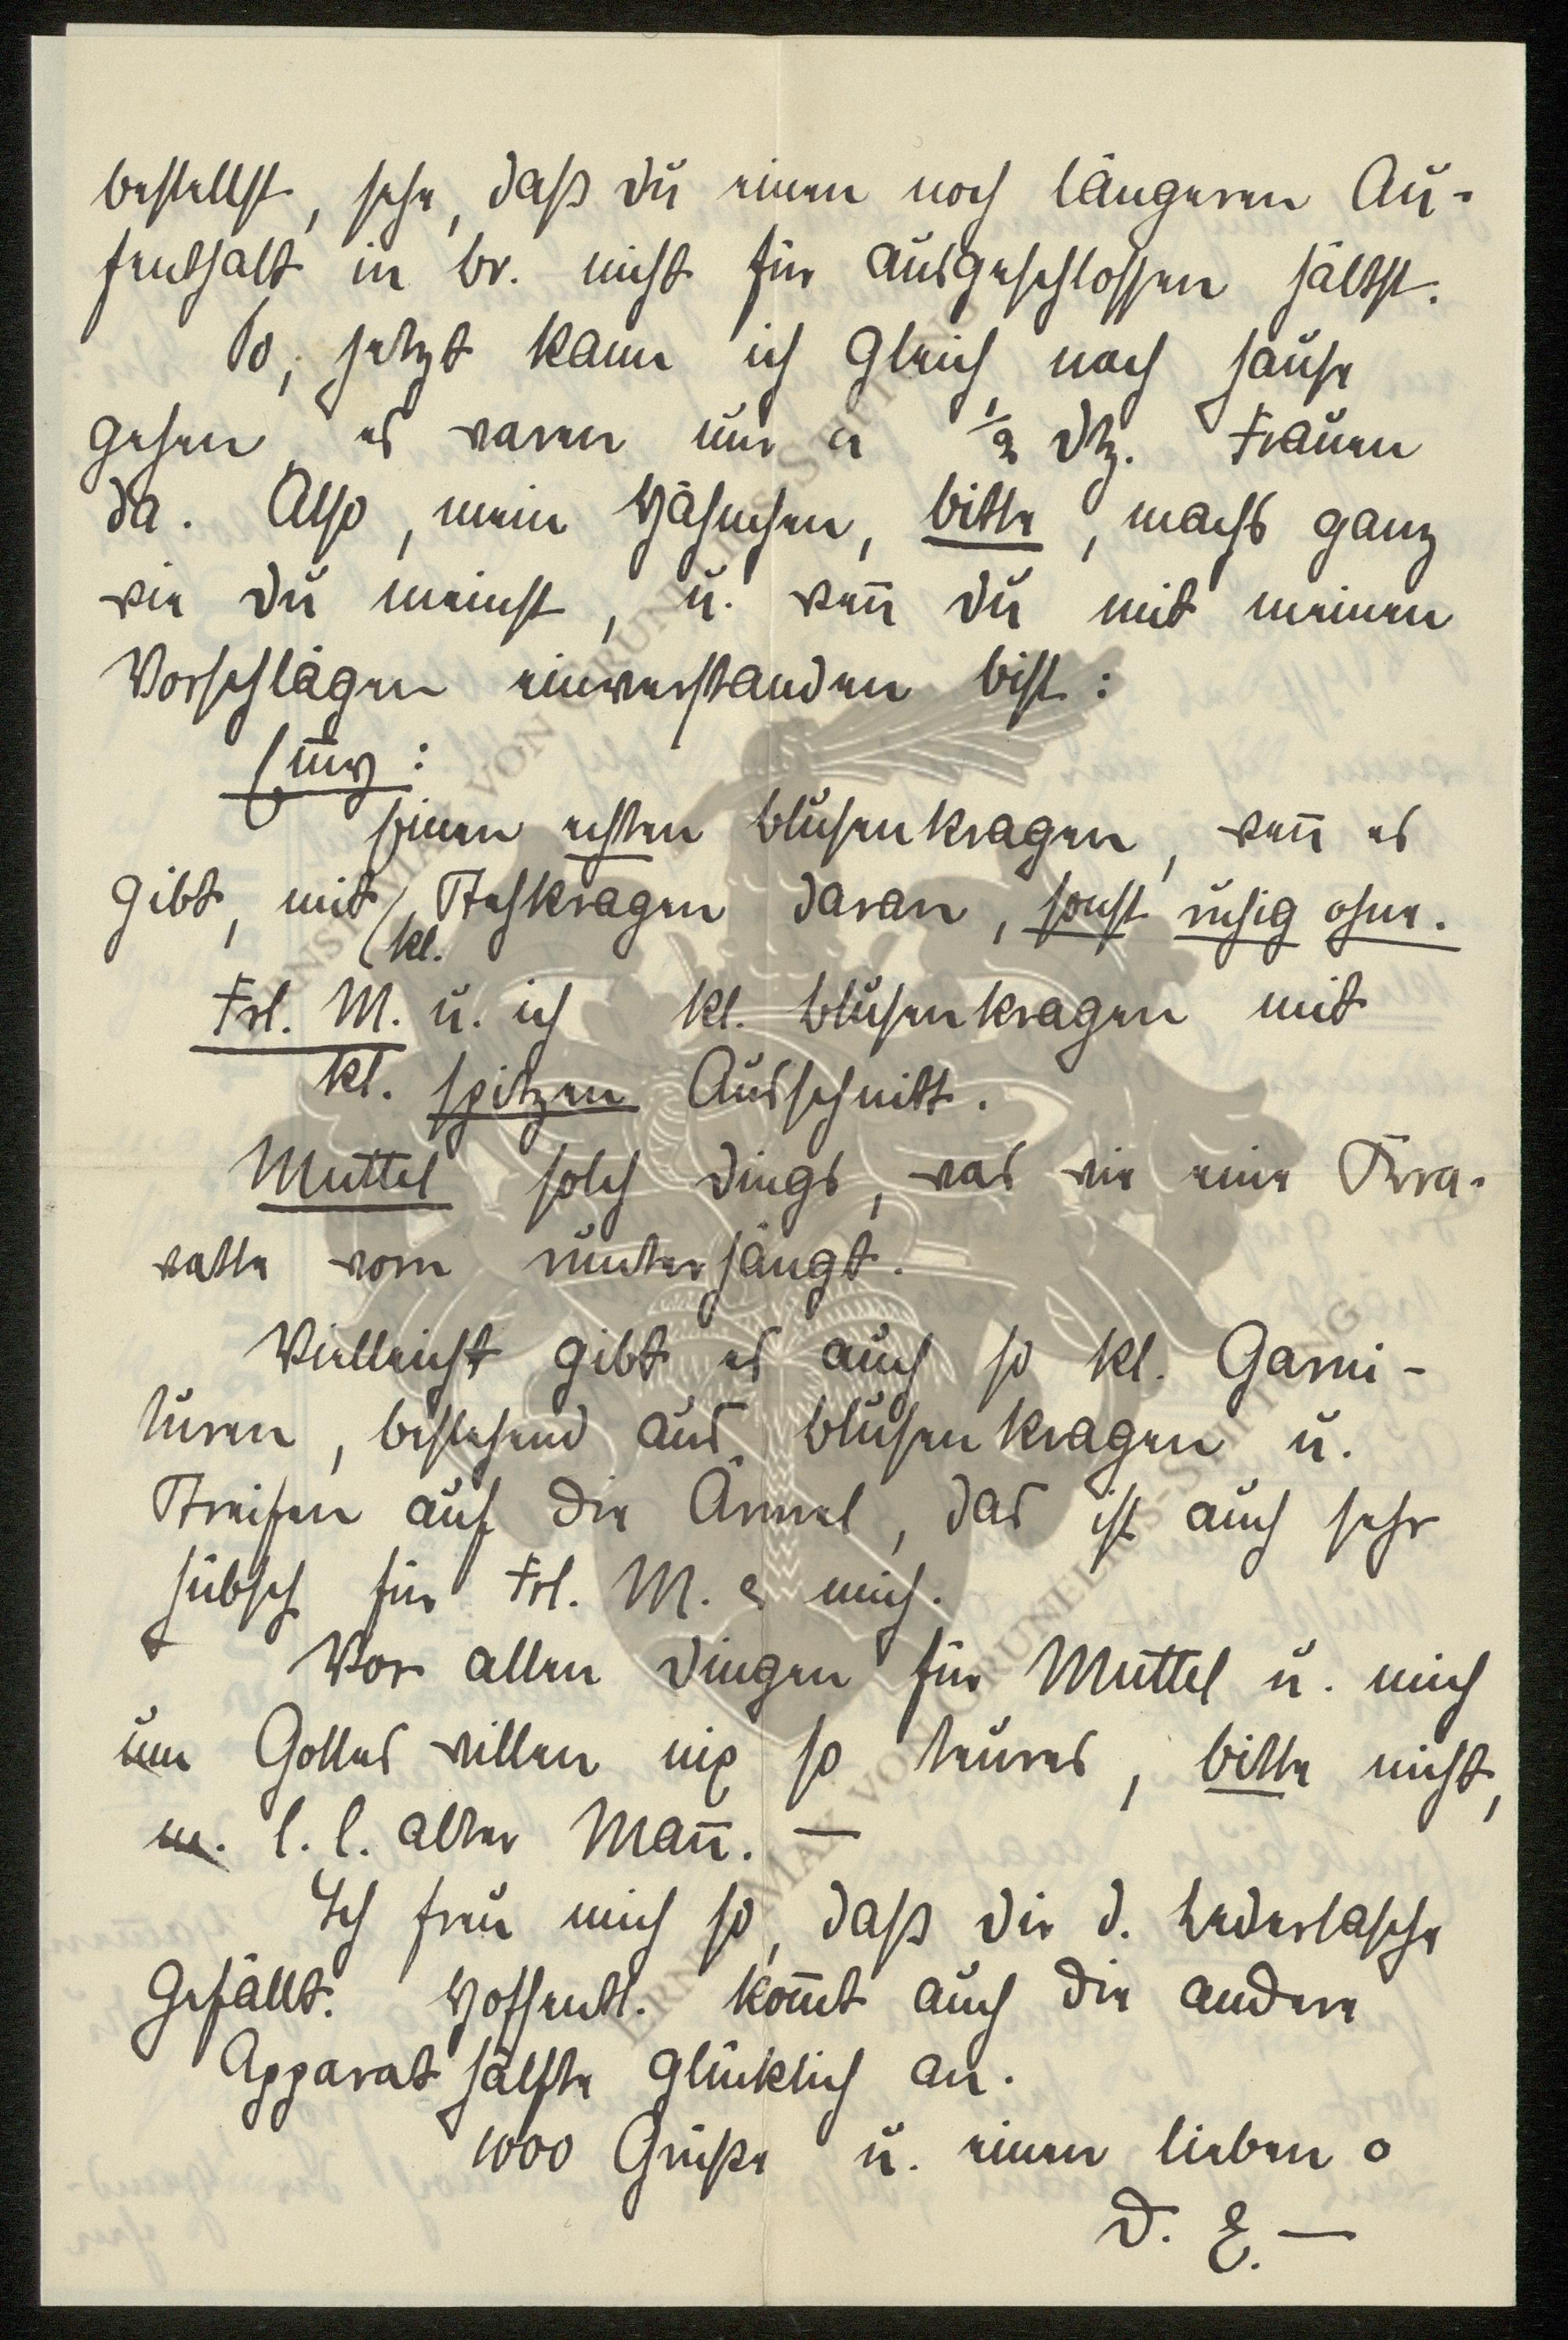 bestellst, sehe, daß Du einen noch längeren Au-
fenthalt in Br. nicht für ausgeschlossen hältst.
So, jetzt kann ich gleich nach Hause
gehen, es waren nur a ½ Dtz. Frauen
da. Also, mein Hähnchen, bitte, machs ganz
wie Du meinst, u. wen̄ Du mit meinen
Vorschlägen einverstanden bist:
einen echten Blusenkragen, wen̄ es
gibt, mit kl. Stehkragen daran, sonst ruhig ohne.
Frl. M. u. ich kl. Blusenkragen mit
kl. spitzen Ausschnitt.
Muttel solch Dings, was wie eine Kra-
watte vorn runterhängt.
Vielleicht gibt es auch so kl. Garni-
turen, bestehend aus Blusenkragen u.
Streifen auf die Ärmel, das ist auch sehr
hübsch für Frl. M. & mich.
Vor allen Dingen für Muttel u. mich
um Gottes willen nix so teures, bitte nicht,
m. l. l. alter Man̄. —
Ich freu mich so, daß Dir d. Ledertasche
gefällt. Hoffentl. kom̄t auch die andere
Apparathälfte glücklich an.
1000 Grüße u. einen lieben o
D. E. —
ERNST MAX VON GRUNELIUS-STIFTUNG
ERNST MAX VON GRUNELIUS-STIFTUNG